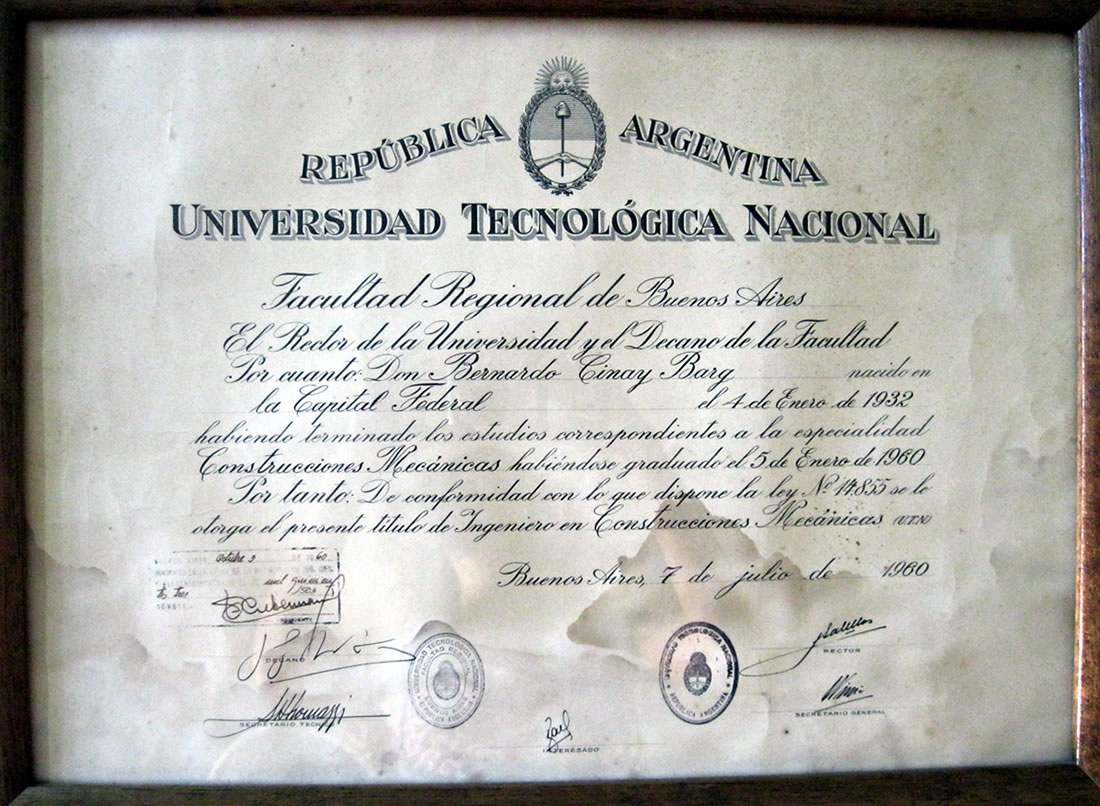 REPÚBLICA ARGENTINA
UNIVERSIDAD TECNOLÓGICA NACIONAL
Facultad Regional de Buenos Aires
El Rector de la Universidad y el Decano de la Facultad
Por cuanto: Don Bernardo Cinay Barg nacido en
la Capital Federal el 4 de Enero de 1932
habiendo terminado los estudios correspondientes a la especialidad
Construcciones Mecánicas habiéndose graduado el 5 de Enero de 1960
Por tanto: De conformidad con lo que dispone la ley Nº 14.855 se le
otorga el presente título de Ingeniero en Construcciones Mecánicas (U.T.N)
Buenos Aires, 7 de julio de 1960
Octubre 60
mil
DECANO
SECRETARIO
UNIVERSIDAD TECNOLOGICA NACIONAL
FACULTAD REGIONAL
BUENOS AIRES
REPUBLICA ARGENTINA
INTERESADO
UNIVERSIDAD TECNOLOGICA NACIONAL
REPUBLICA ARGENTINA
RECTOR
SECRETARIO GENERAL